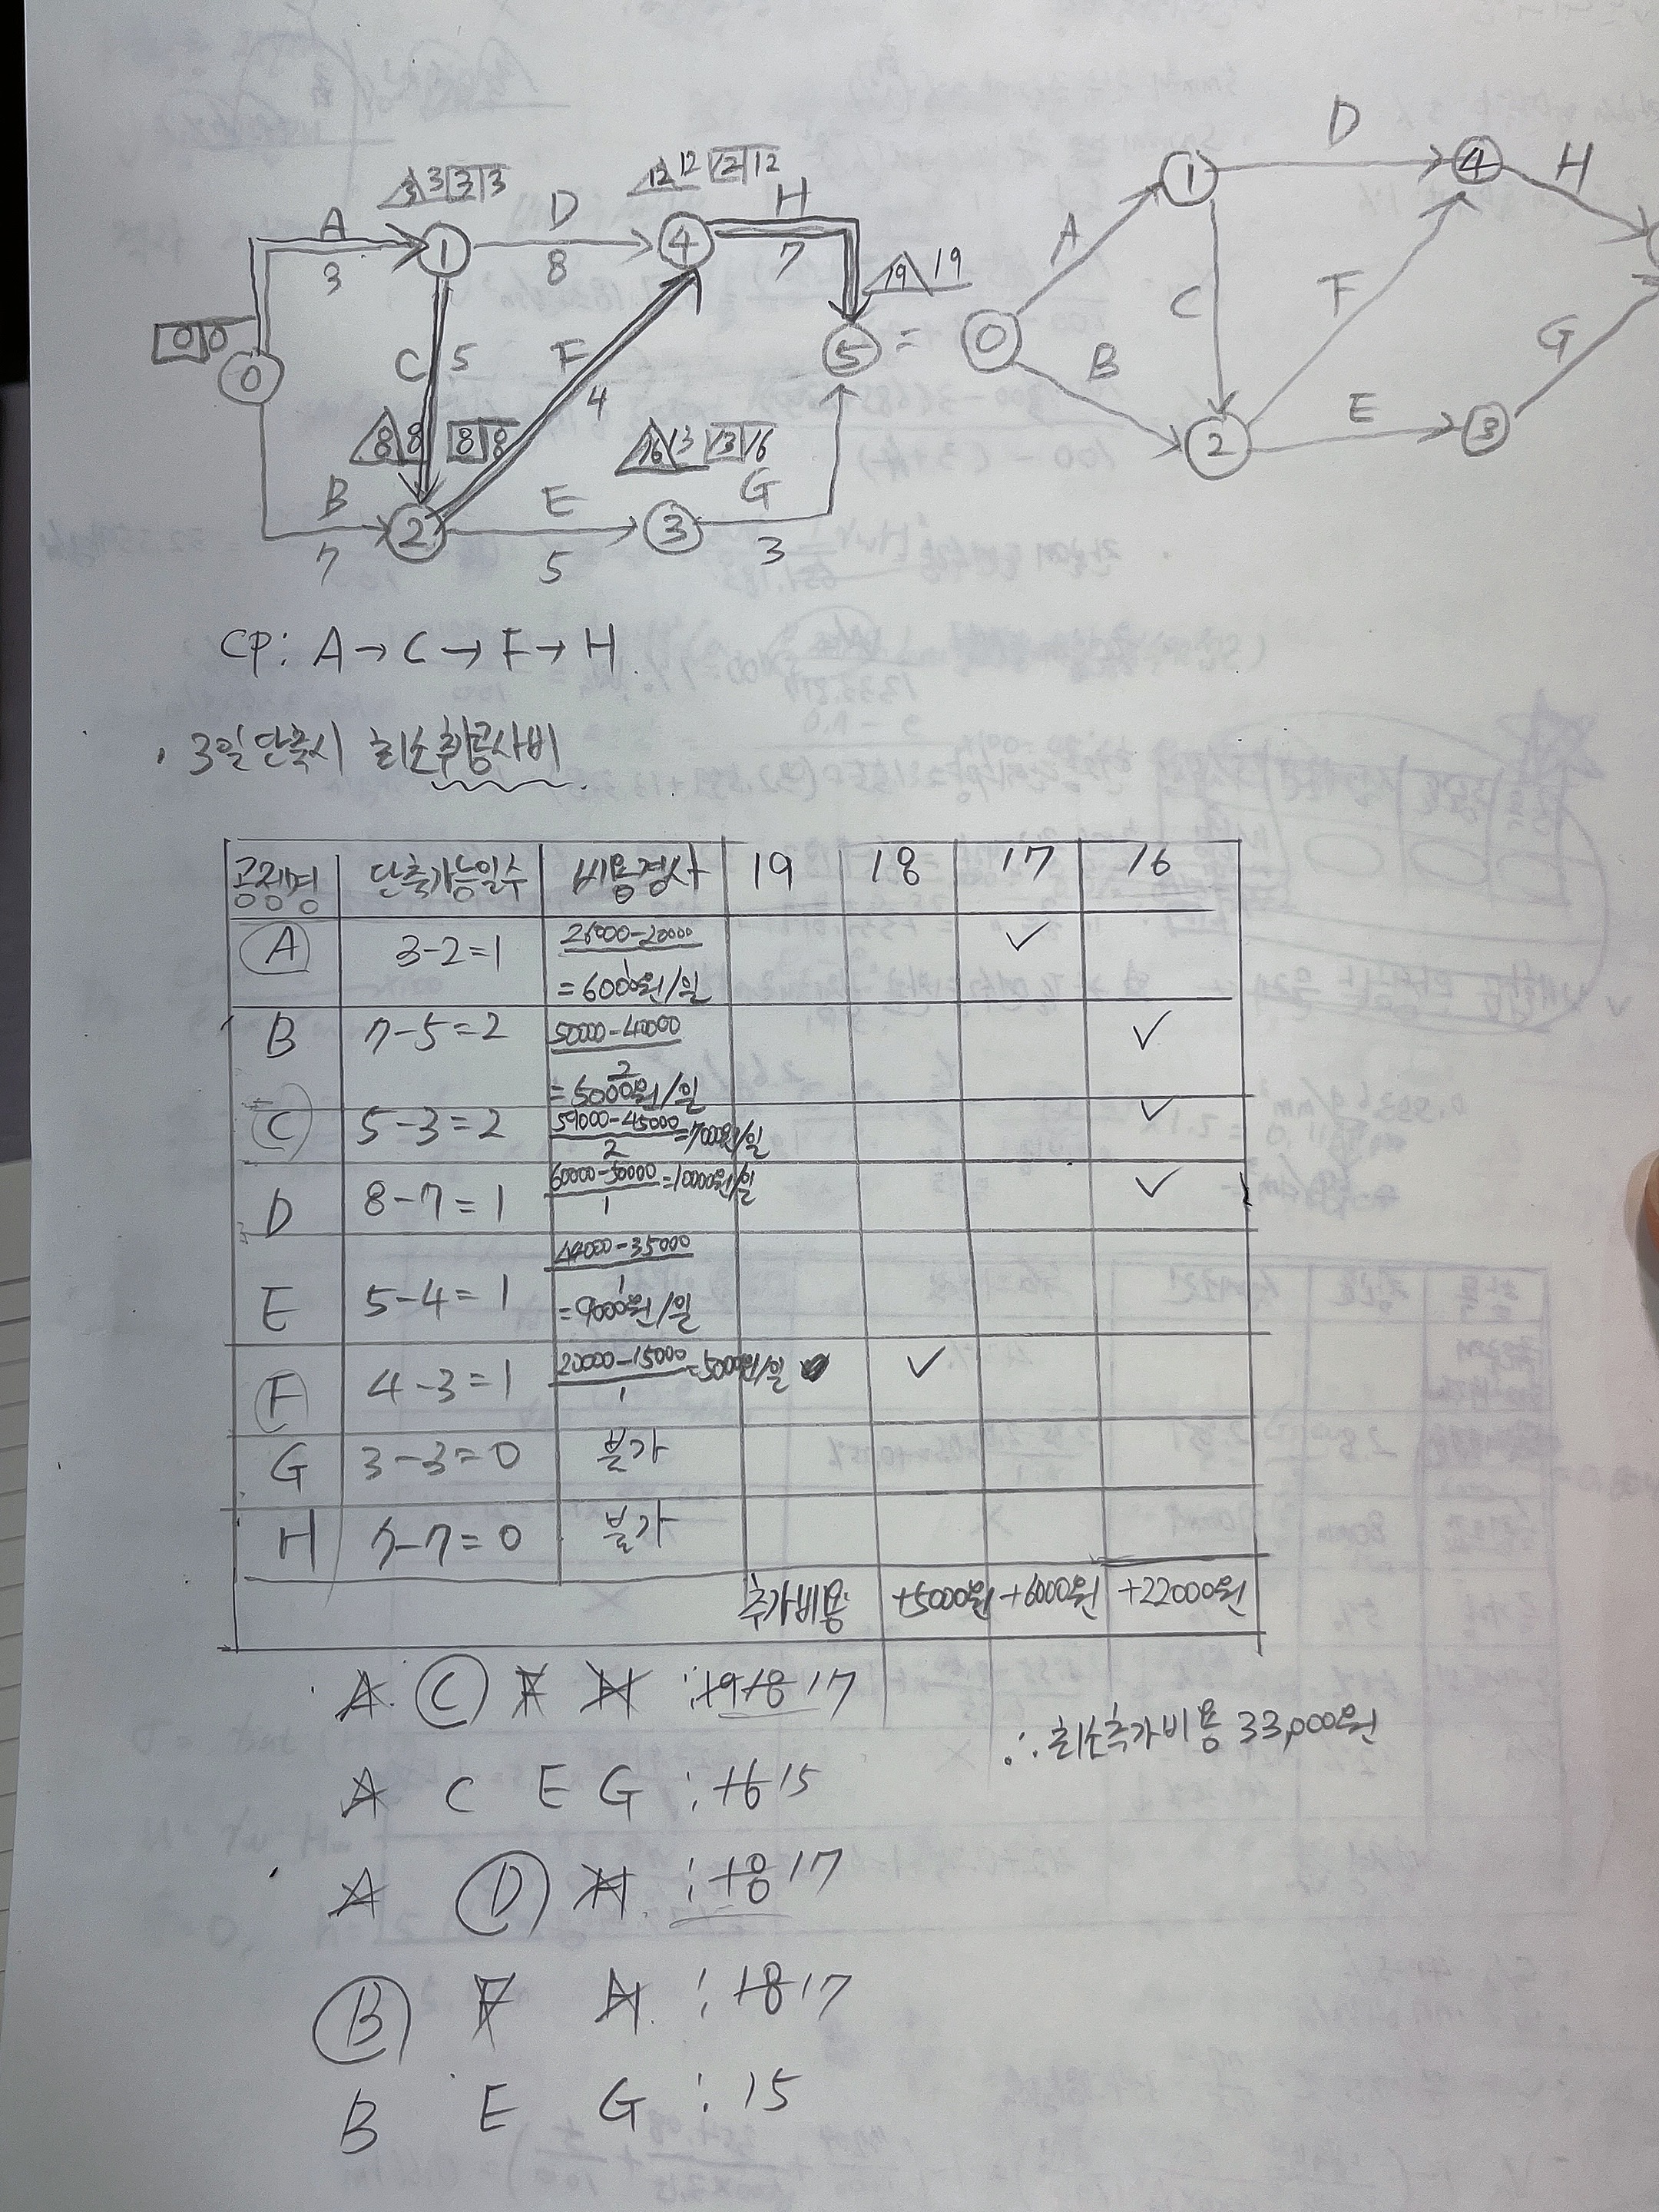 3 3 3 3
12 12 12 12
A 3
D 8
H 7
19 19
0 0
0
1
4
5 =
C 5
F 4
8 8 8 8
16 13 13 16
B 7
2
E 5
3
G 3
D
1
4
H
A
C
F
0
B
G
E
2
3
CP: A→C→F→H
· 3일 단축시 최소추가공사비
공정명 단축가능일수 비용경사 19 18 17 16
A 3-2=1 26000-20000
1
=6000원/일 ✓
B 7-5=2 50000-40000
2
=5000원/일 ✓
C 5-3=2 59000-45000
2 =7000원/일 ✓
D 8-7=1 60000-50000
1 =10000원/일 ✓
E 5-4=1 44000-35000
1
=9000원/일
F 4-3=1 20000-15000
1 =5000원/일 ✓
G 3-3=0 불가
H 7-7=0 불가
추가비용 +5000원 +6000원 +22000원
A C F H : 19 18 17
A C E G : 16 15
∴ 최소추가비용 33,000원
A D H : 18 17
B F H : 18 17
B E G : 15